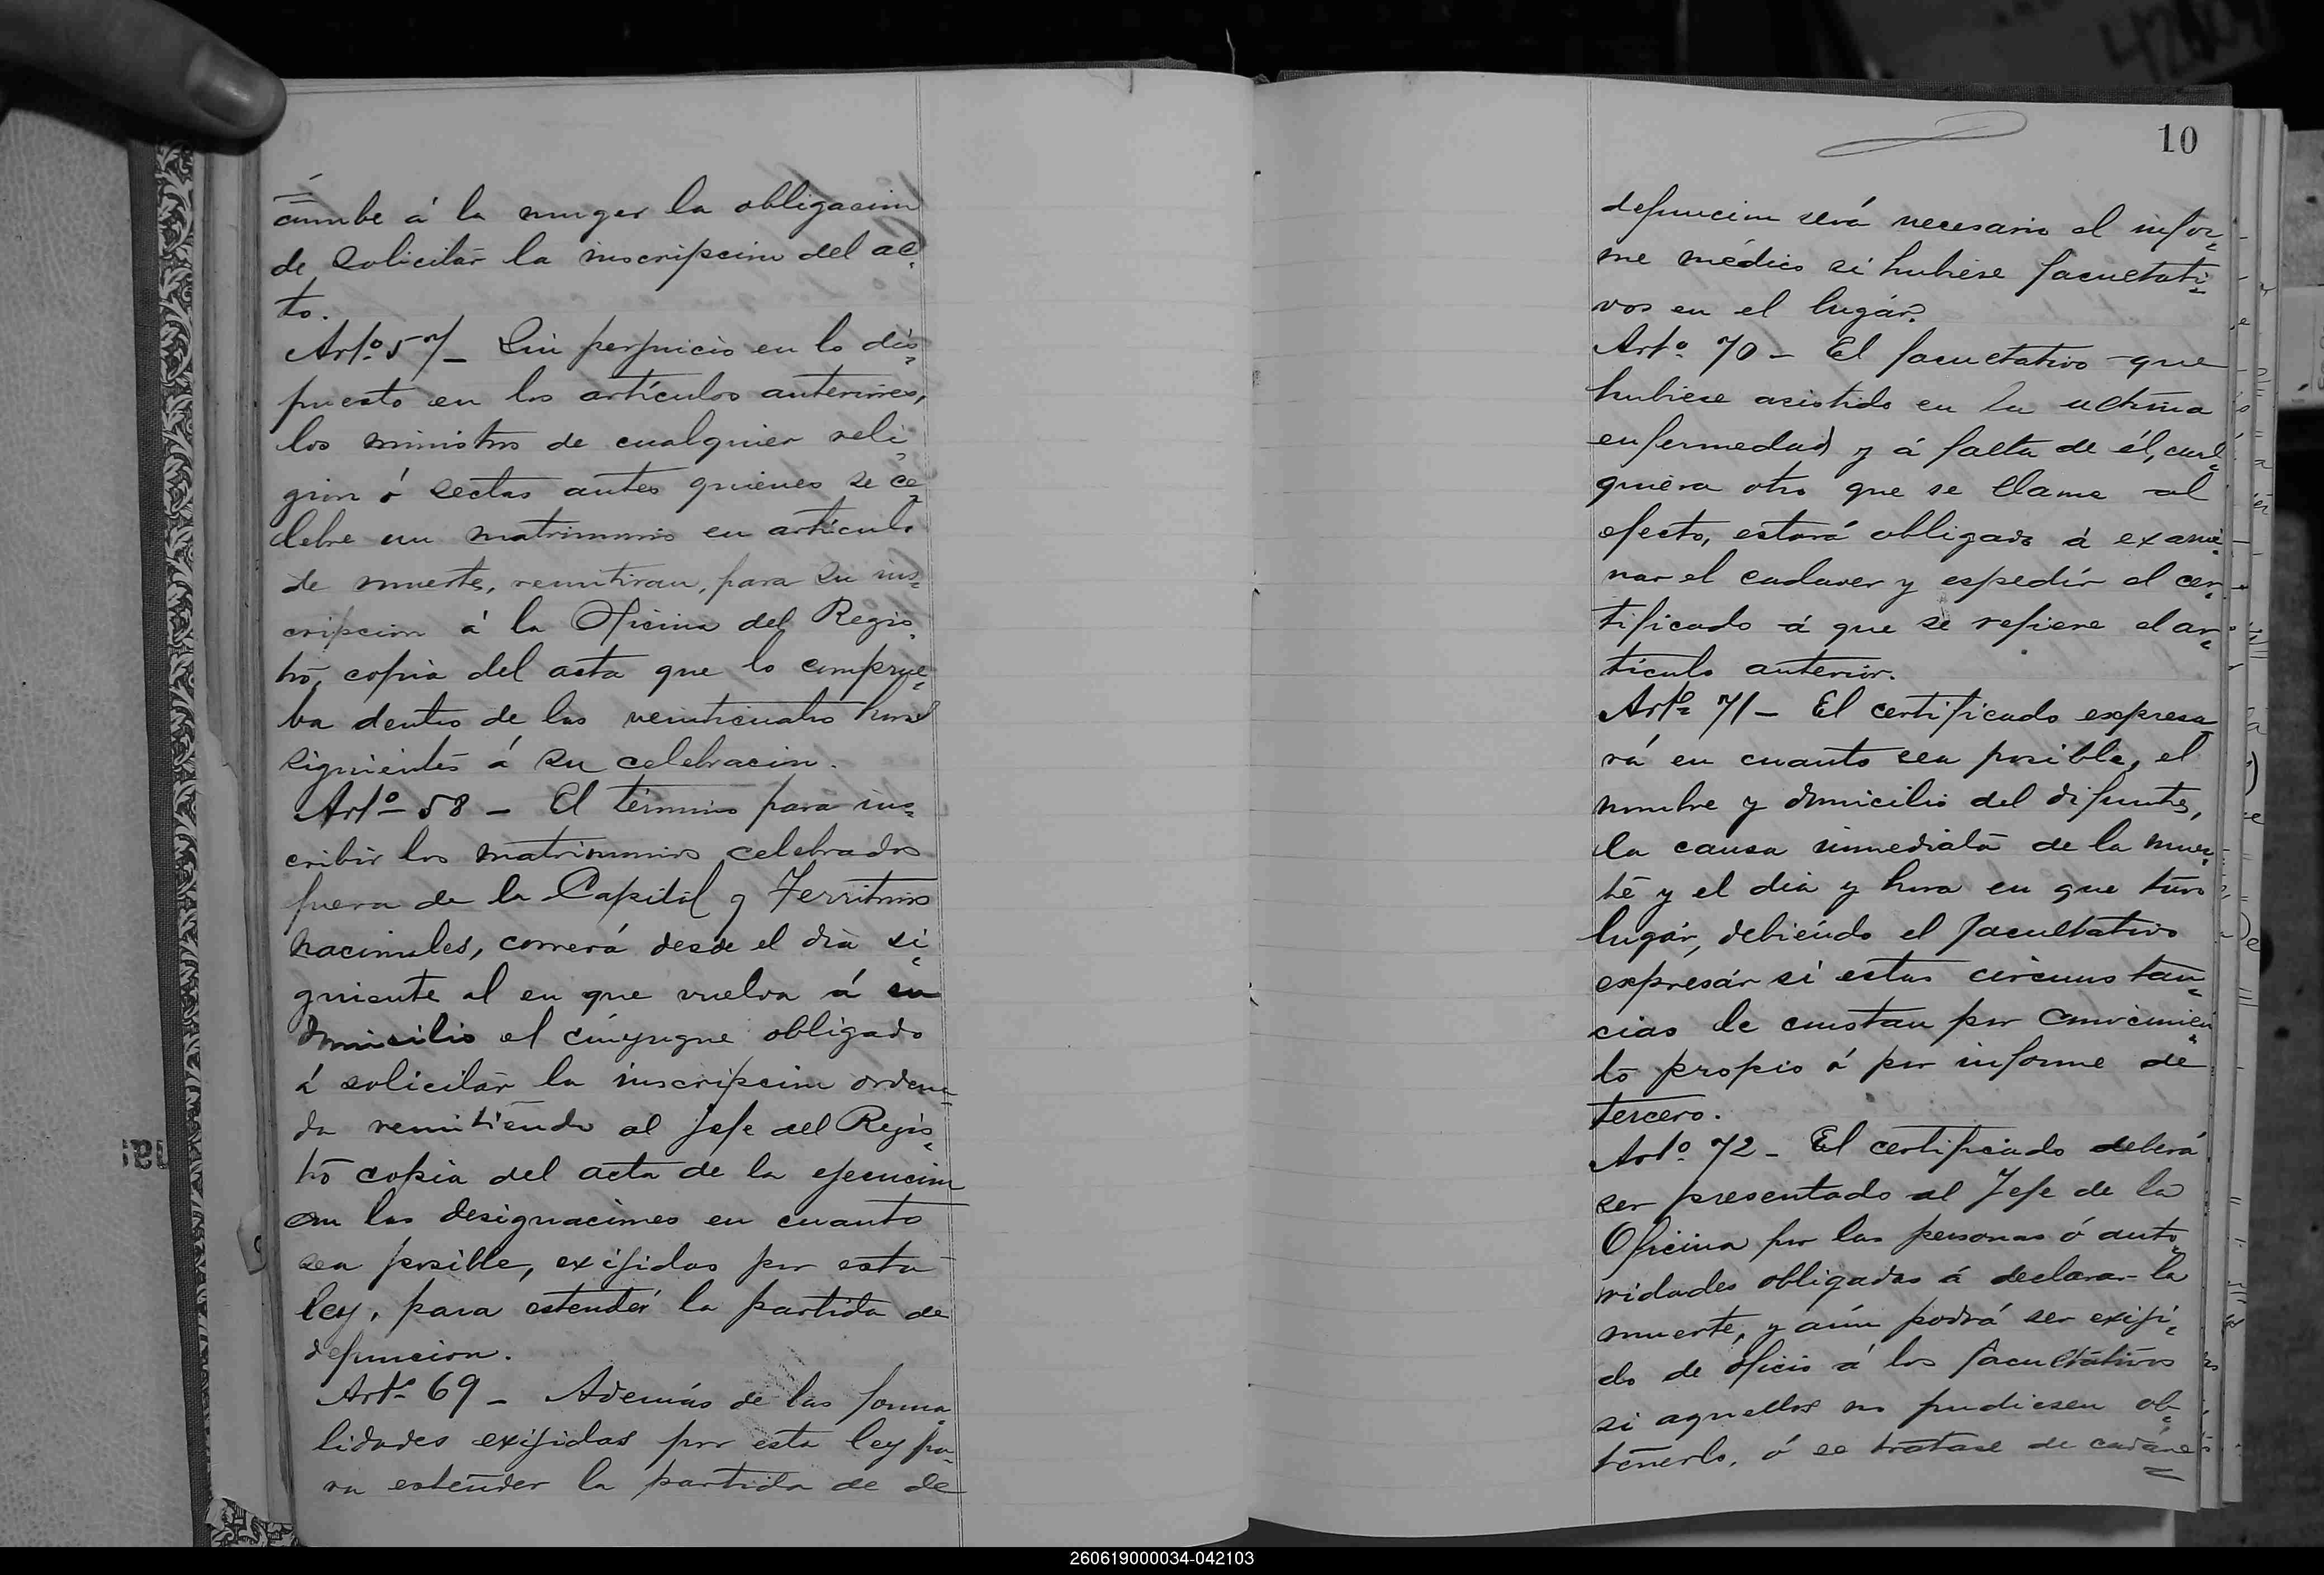 cumbe á la muger la obligacion
de solicitár la inscripcion del ac-
to.
Artº 57_ Sin perjuicio en lo dis-
puesto en los artículos anteriores,
los ministros de cualquier reli-
gion ó sectas antes quienes se ce-
lebre un matrimonio en artículo
de muerte, remitiran, para su ins-
cripcion á la Oficina del Regis-
tro, copia del acta que lo comprue-
ba dentro de las veinticuatro horas
siguientes á su celebracion.
Artº 58 _ El término para ins-
cribir los matrimonios celebrados
fuera de la Capital y Territorios
nacionales, correrá desde el dia si-
guiente al en que vuelva á su
domicilio el cónyugue obligado
á solicitár la inscripcion ordena-
da remitiendo al Jefe del Regis-
tro copia del acta de la ejecucion
con las designaciones en cuanto
sea posible, exijidas por esta
ley, para estender la partida de
defuncion.
Artº 69 _ Además de las forma-
lidades exijidas por esta ley pa-
ra estender la partida de de
10
defuncion será necesario el infor-
me médico si hubiese facultati-
vos en el lugár.
Artº 70 _ El facultativo que
hubiese asistido en la ultima
enfermedad y á falta de él, cual-
quiera otro que se llame al
efecto, estará obligado á exami-
nar el cadaver y espedir el cer-
tificado á que se refiere el ar-
tículo anterior.
Artº 71 _ El certificado expresa-
rá en cuanto sea posible, el
nombre y domicilio del difunto,
la causa inmediata de la muer-
te y el dia y hora en que tuvo
lugár, debiendo el facultativo
expresár si estas circunstan-
cias le constan por conocimien-
to propio ó por informe de
tercero.
Artº 72 _ El certificado deberá
ser presentado al Jefe de la
Oficina por las personas ó auto-
ridades obligadas á declarar la
muerte, y aún podrá ser exiji-
do de oficio á los facultativos
si aquellos no pudiesen ob-
tenerlo, ó se tratase de cadáve
260619000034-042103